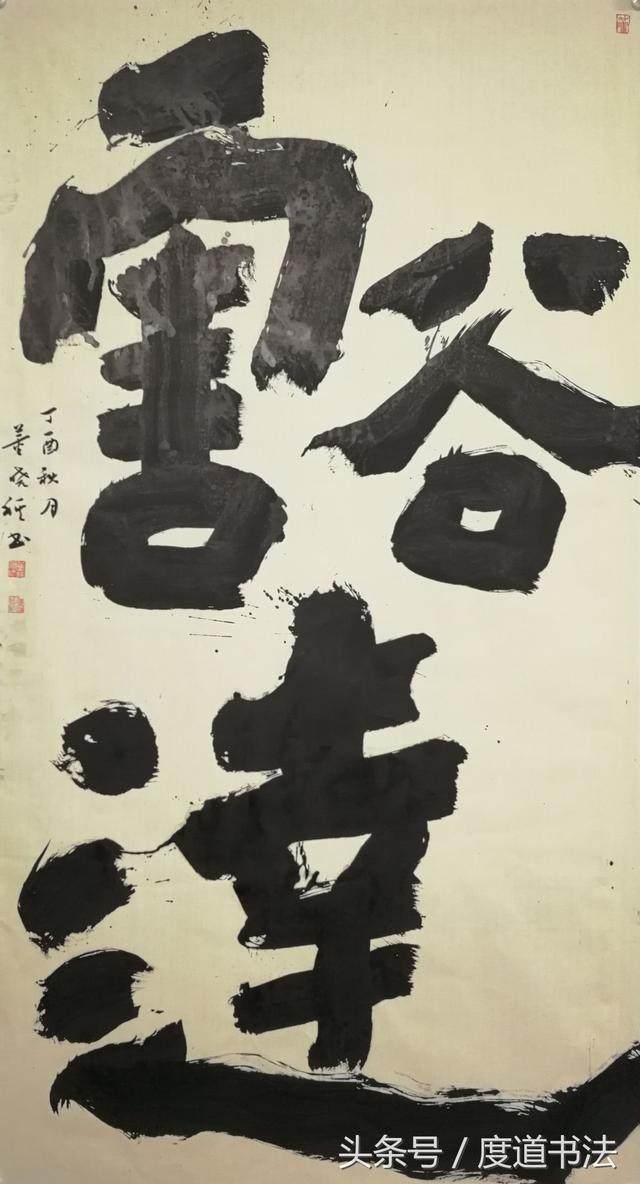 豁達
丁酉秋月
董 书
头条号 / 度道书法